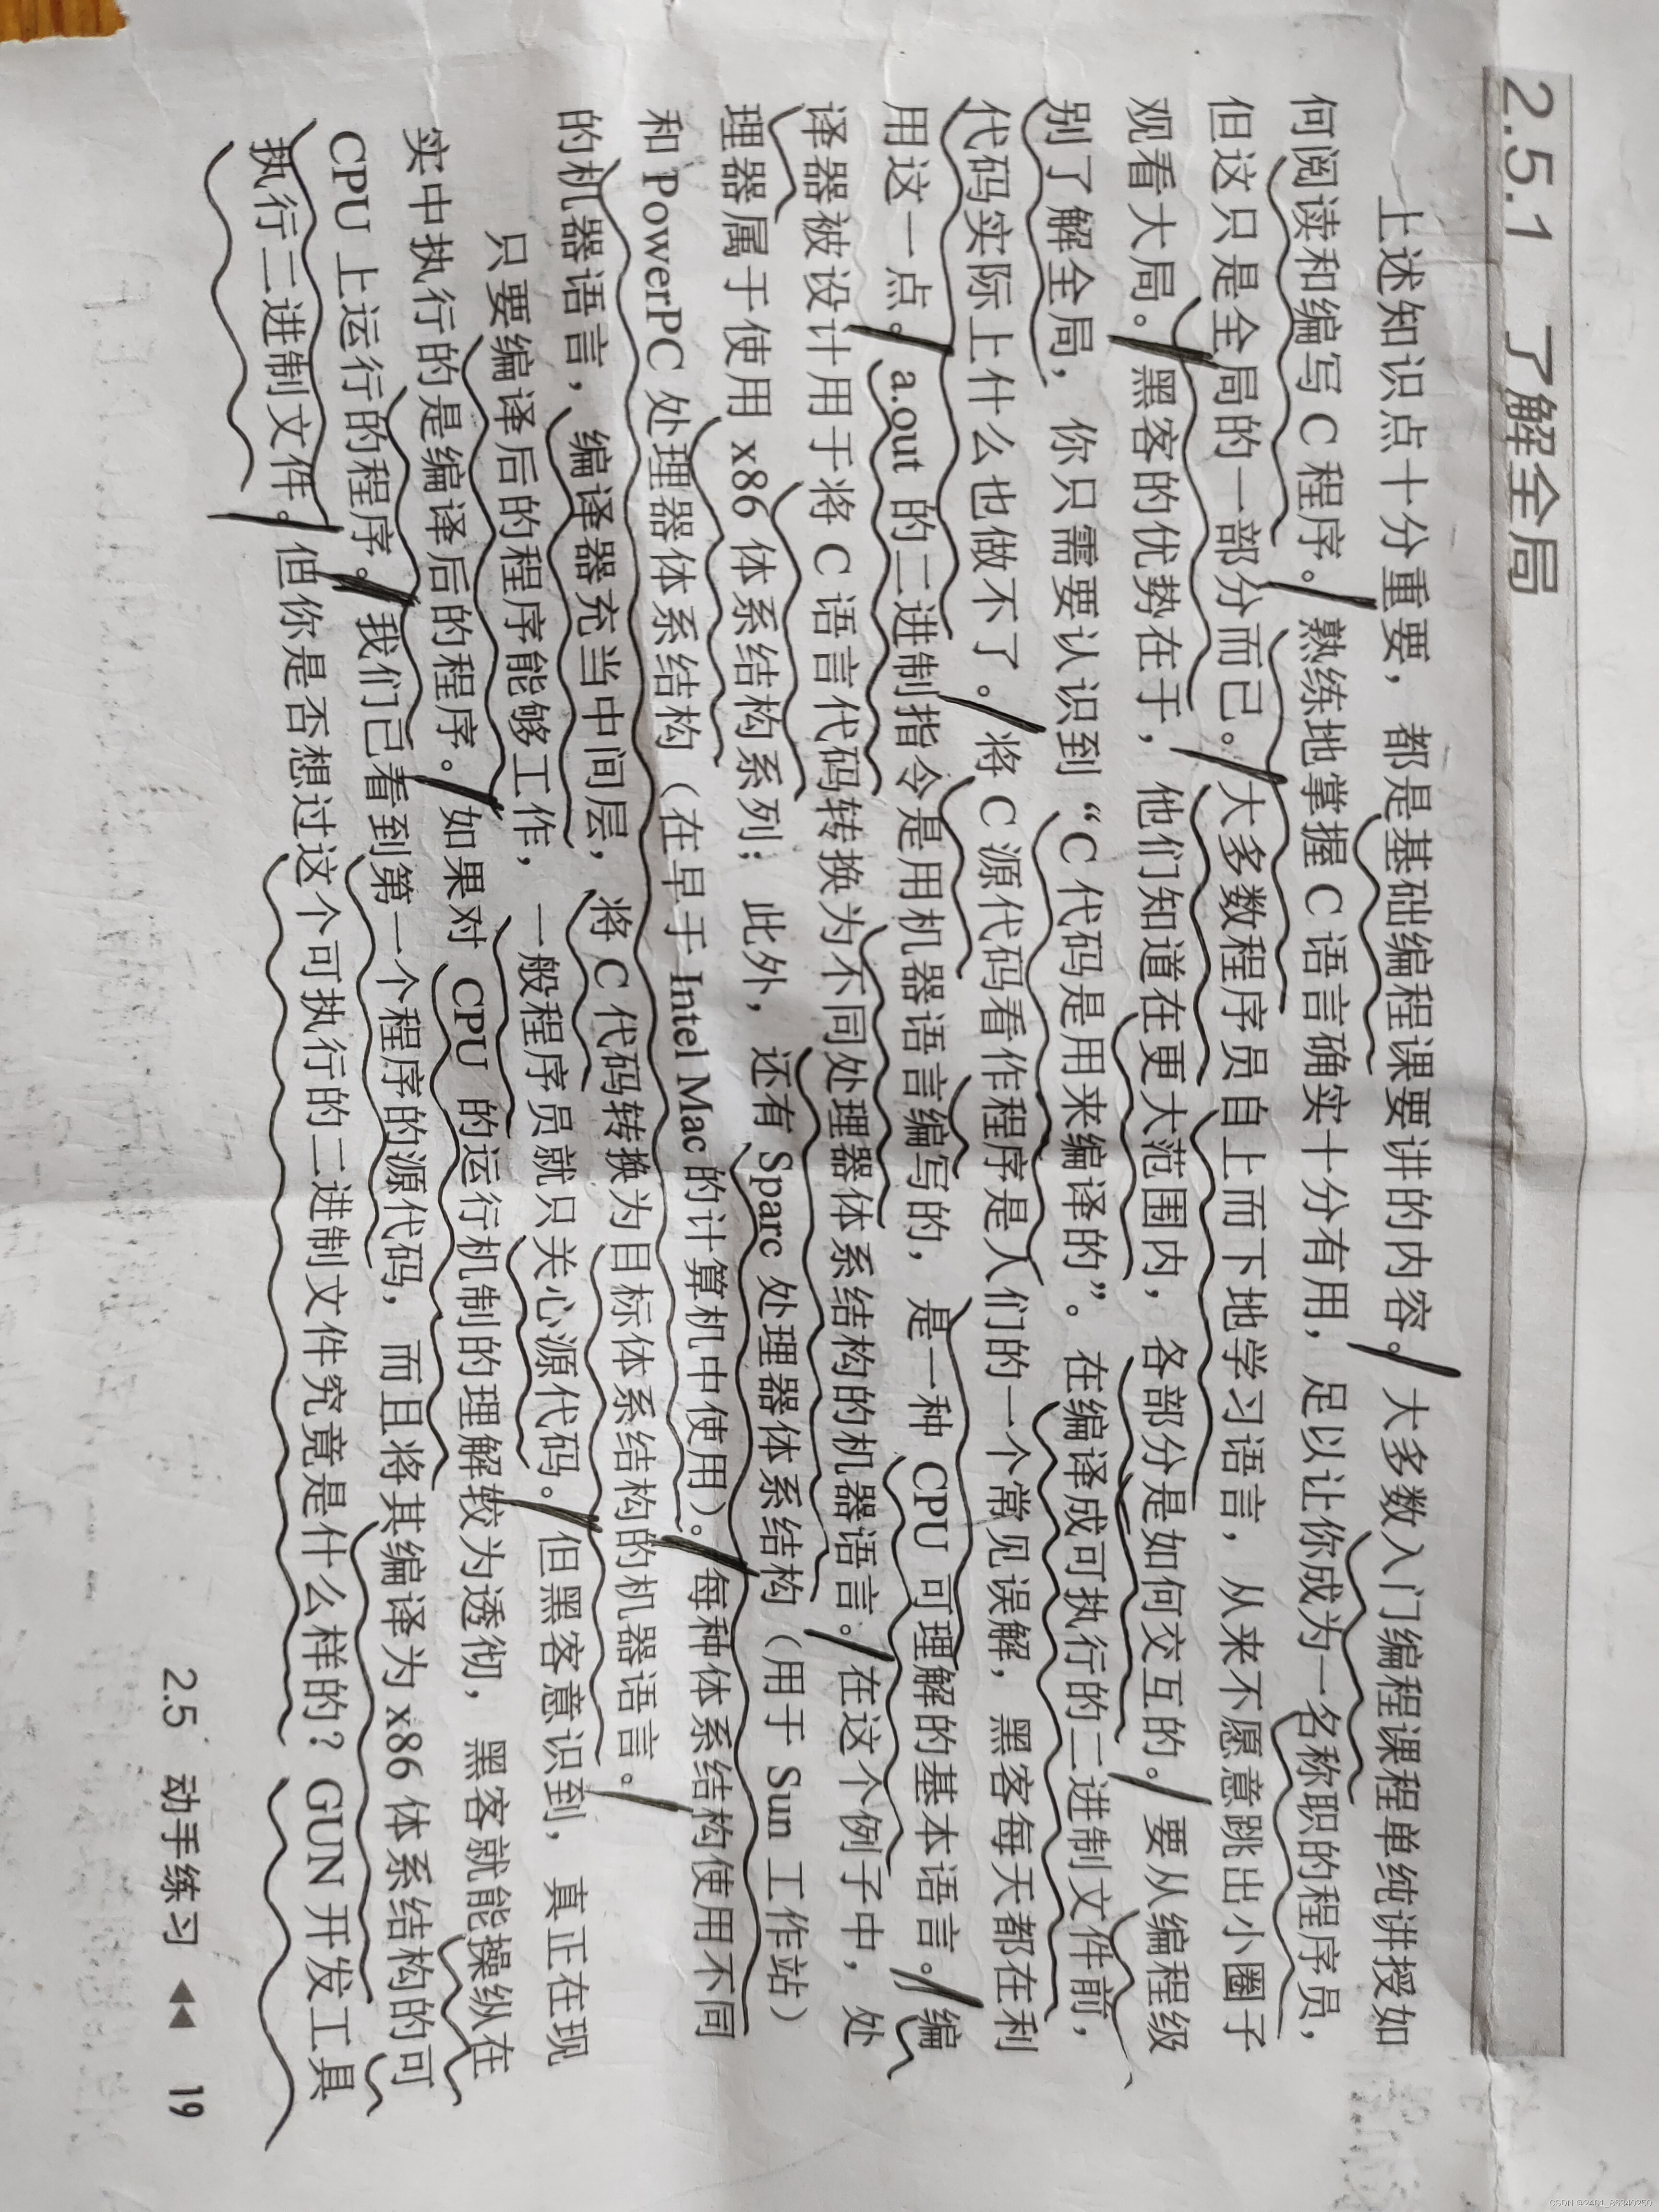 2.5.1 了解全局
上述知识点十分重要，都是基础编程课要讲的内容。大多数入门编程课程单纯讲授如
何阅读和编写 C 程序。熟练地掌握 C 语言确实十分有用，足以让你成为一名称职的程序员，
但这只是全局的一部分而已。大多数程序员自上而下地学习语言，从来不愿意跳出小圈子
观看大局。黑客的优势在于，他们知道在更大范围内，各部分是如何交互的。要从编程级
别了解全局，你只需要认识到“C 代码是用来编译的”。在编译成可执行的二进制文件前，
代码实际上什么也做不了。将 C 源代码看作程序是人们的一个常见误解，黑客每天都在利
用这一点。a.out 的二进制指令是用机器语言编写的，是一种 CPU 可理解的基本语言。编
译器被设计用于将 C 语言代码转换为不同处理器体系结构的机器语言。在这个例子中，处
理器属于使用 x86 体系结构系列；此外，还有 Sparc 处理器体系结构（用于 Sun 工作站）
和 PowerPC 处理器体系结构（在早于 Intel Mac 的计算机中使用）。每种体系结构使用不同
的机器语言，编译器充当中间层，将 C 代码转换为目标体系结构的机器语言。
只要编译后的程序能够工作，一般程序员就只关心源代码。但黑客意识到，真正在现
实中执行的是编译后的程序。如果对 CPU 的运行机制的理解较为透彻，黑客就能操纵在
CPU 上运行的程序。我们已看到第一个程序的源代码，而且将其编译为 x86 体系结构的可
执行二进制文件。但你是否想过这个可执行的二进制文件究竟是什么样的？GUN 开发工具
2.5 动手练习 ◀◀ 19
CSDN @2401_86340250